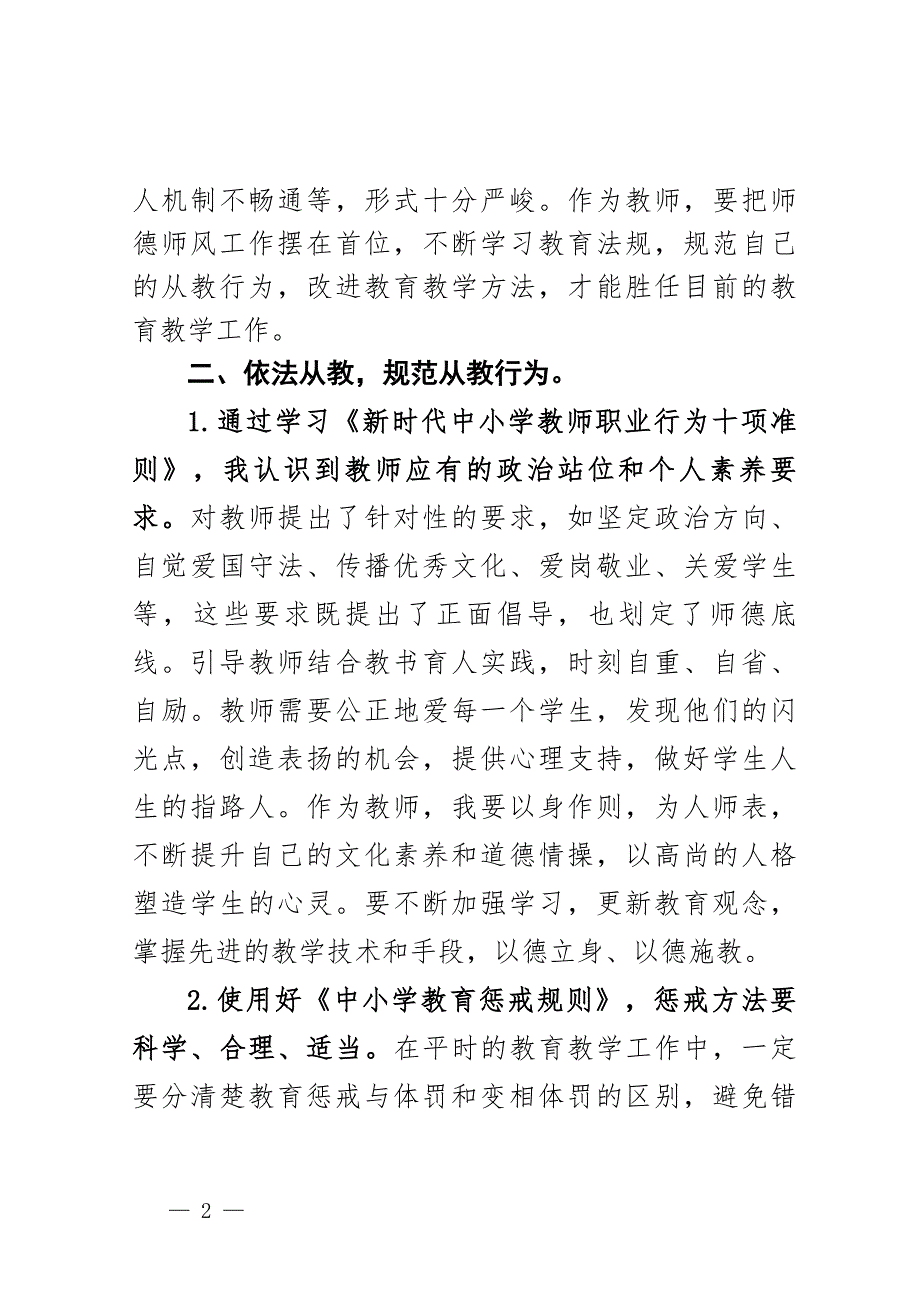 人机制不畅通等，形式十分严峻。作为教师，要把师
德师风工作摆在首位，不断学习教育法规，规范自己
的从教行为，改进教育教学方法，才能胜任目前的教
育教学工作。
二、依法从教，规范从教行为。
1.通过学习《新时代中小学教师职业行为十项准
则》，我认识到教师应有的政治站位和个人素养要
求。对教师提出了针对性的要求，如坚定政治方向、
自觉爱国守法、传播优秀文化、爱岗敬业、关爱学生
等，这些要求既提出了正面倡导，也划定了师德底
线。引导教师结合教书育人实践，时刻自重、自省、
自励。教师需要公正地爱每一个学生，发现他们的闪
光点，创造表扬的机会，提供心理支持，做好学生人
生的指路人。作为教师，我要以身作则，为人师表，
不断提升自己的文化素养和道德情操，以高尚的人格
塑造学生的心灵。要不断加强学习，更新教育观念，
掌握先进的教学技术和手段，以德立身、以德施教。
2.使用好《中小学教育惩戒规则》，惩戒方法要
科学、合理、适当。在平时的教育教学工作中，一定
要分清楚教育惩戒与体罚和变相体罚的区别，避免错
— 2 —